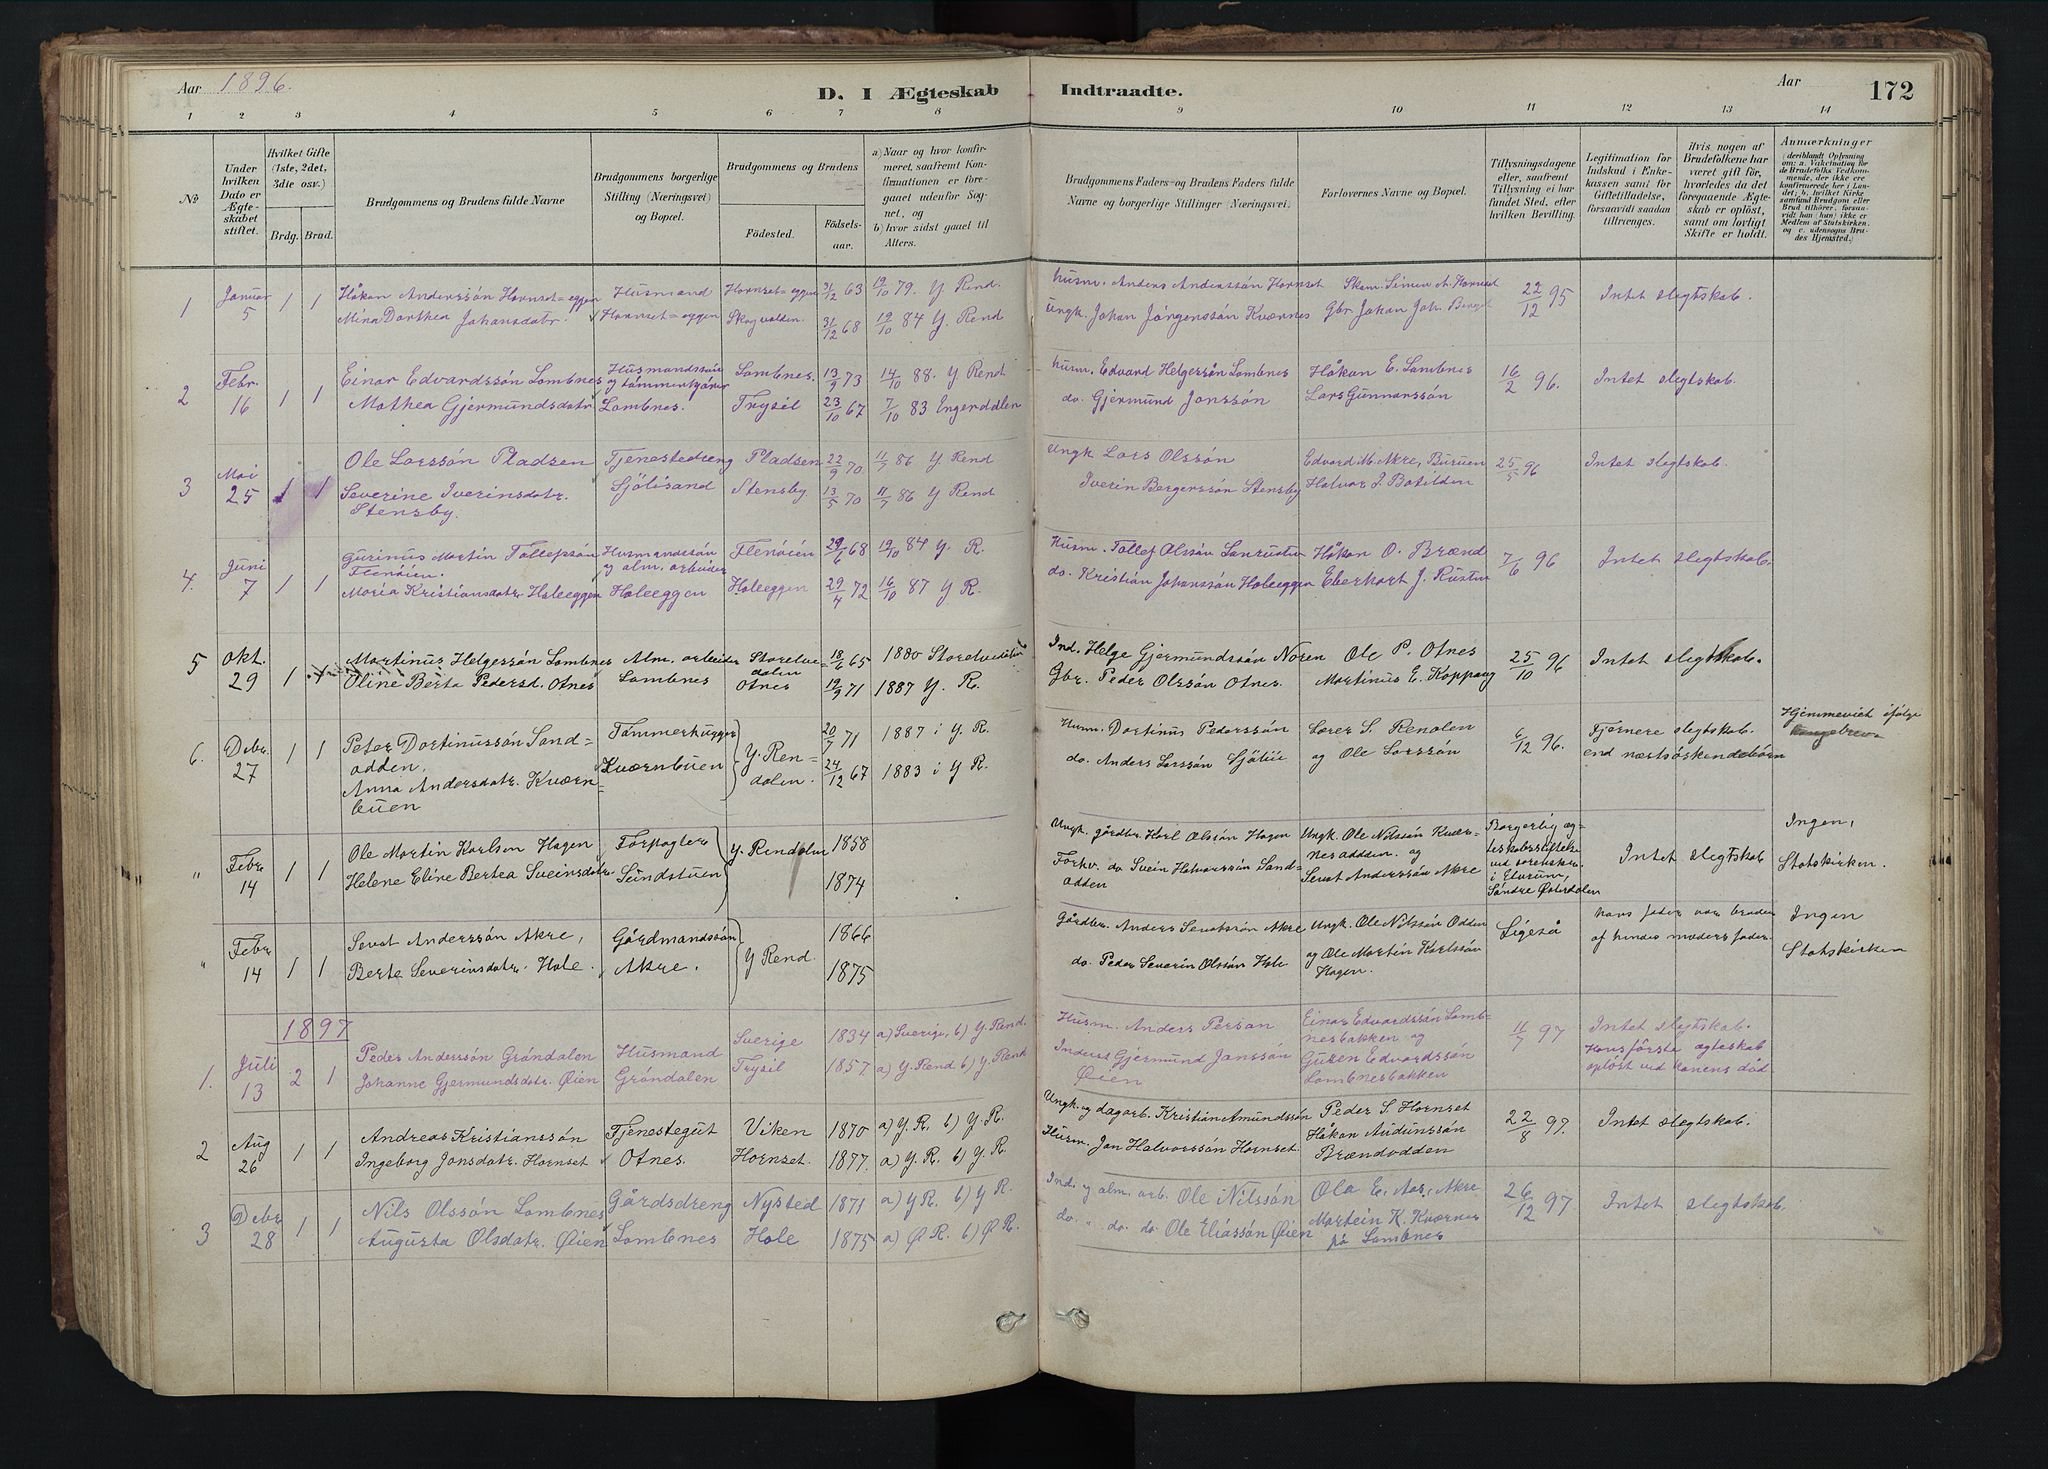 Aar 1896.
D. I Ægteskab Indtraadte.
Aar
172
1 2 3 4 5 6 7 8 9 10 11 12 13 14
No
Under hvilken Dato er Ægteskabet stiftet.
Hvilket Gifte (1ste, 2det, 3die osv.)
Brdg. Brud.
Brudgommens og Brudens fulde Navne
Brudgommens borgerlige Stilling (Næringsvei) og Bopæl.
Brudgommens og Brudens
Fødested.
Fødselsaar.
a) Naar og hvor konfirmeret, saafremt Konfirmationen er foregaaet udenfor Sognet, og
b) hvor sidst gaaet til Alters.
Brudgommens Faders- og Brudens Faders fulde Navne og borgerlige Stillinger (Næringsvei).
Forlovernes Navne og Bopæl.
Tillysningsdagene eller, saafremt Tillysning ei har fundet Sted, efter hvilken Bevilling.
Legitimation for Indskud i Enkekassen samt for Giftetilladelse, forsaavidt saadan tiltrænges.
Hvis nogen af Brudefolkene har været gift før, hvorledes da det foregaaende Ægteskab er opløst, samt om lovligt Skifte er holdt.
Anmærkninger
(deriblandt Oplysning om: a. Vakcination for de Brudefolks Vedkommende, der ikke ere konfirmerede her i Landet; b. hvilket Kirkesamfund Brudgom eller Brud tilhører, forsaavidt han (hun) ikke er Medlem af Statskirken, og c. udensogns Brudes Hjemsted.)
1 Januar 5 1 1 Håkan Anderssön Hornset=eggen Husmand Hornset=eggen 31/12 63 19/10 79. Y Rend. husm. Anders Anderssön Hornset Skom. Simen A. Hornset 22/12 95 Intet slegtskab.
Mina Dorthea Johansdatr. Hornset=eggen Skogvolden. 31/12 68 19/10 84 Y. Rend ungk. Johan Jörgenssön Kværnes Gbr Johan Joh. Berget
2 Febr. 16 1 1 Einar Edvardssön Lombnes Husmandssön og tömmerkjörer Lombnes. 13/9 73 14/10 88. Y. Rend husm. Edvard Helgerssön Lombnes Håkan E. Lombnes 16/2 96. Intet slegtskab.
Mathea Gjermundsdatr Lombnes. Trysil 23/10 67 7/10 83 Engerdalen do. Gjermund Jonssön Lars Gunnarssön
3 Mai 25 1 1 Ole Larssön Pladsen Tjenestedreng Pladsen 22/9 70 11/7 86 Y. Rend Ungk Lars Olssön Edvard M. Akre, Buruen 25/5 96 Intet slegtskab.
Severine Iverinsdatr. Stensby. Sjölisand Stensby 13/5 70 11/7 86 Y Rend Iverin Bergerssön Stensby Halvor J. Botilden
4. Juni 7 1 1 Gurinus Martin Tollefssön Flenöien. Husmandssön og alm. arbeider Flenöien 29/6 68 19/10 84 Y. R. Husm. Tollef Olssön Håkan O. Brænd 7/6 96 Intet slegtskab.
Maria Kristiansdatr Holeeggen Holeeggen Holeeggen 29/4 72 16/10 87 Y R. do. Kristian Johanssön Holeeggen Eberhart J. Rustu
5 Okt. 29 1 Martinus Helgessön Lombnes Alm. arbeider Storelvedalen 18/6 65 1880 Storelvedalen Ind. Helge Gjermundssön Noren Ole P. Otnes 25/10 96 Intet slegtskab.
Oline Berta Pedersd. Otnes Lombnes Otnes 19/9 71 1887 Y. R. Gbr. Peder Olssön Otnes. Martinus E. Koppang
6. Debr. 27 1 1 Peter Dortinussön Sandodden. Tömmerhugger Y. Rendalen. 20/7 71 1887 i Y. R. Husm. Dortinus Pederssön Lærer S. Renolen 6/12 96. Fjernere slegtskab. Hjemmeviet ifölge
Anna Andersdatr. Kværnbuen Kværnbuen 24/12 67 1883 i Y R. do. Anders Larssön Sjölii og Ole Larssön end næstsöskendebörn
" Febr 14 1 1 Ole Martin Karlsen Hagen Forpagter Y. Rendalen 1858 Ungk. gårdbr. Karl Olssön Hagen Ungk. Ole Nilssön Kværnesodden. og Borgerlig ægteskabsstiftelse ved sorenskr. i Elvrum, Söndre Østerdalen Intet slegtskab Ingen, Statskirken.
Helene Eline Bertea Sveinsdatr. Sundstuen 1874 Forhv. do Svein Halvorssön Sandodden Sevat Anderssön Akre
" Febr 14 1 1 Sevat Anderssön Akre, Gårdmandssön Y Rend. 1866 Gårdbr. Anders Sevatssön Akre Ungk. Ole Nilssön Odden Ligeså hans fader var broder Ingen
Berte Severinsdatr. Hole. Akre. 1875 do. Peder Severin Olssön Hole og Ole Martin Karlssön Hagen. af hendes moders fader. Statskirken
1897
1. Juli 13 2 1 Peder Anderssön Gröndalen Husmand Sverige 1834 a) Sverige, b) Y. Rend. Husm. Anders Persan Einar Edvardssön Lombnesbakken og 11/7 97 Intet slegtskab.
Johanne Gjermundsdatr. Øien Gröndalen Trysil 1857. a) Y. Rend b) Y. Rend Inderst Gjermund Janssön Øien Guren Edvardssön Lombnesbakken Hans förste ægteskab oplöst ved konens död
2 Aug 26 1 1 Andreas Kristianssön Tjenestegut Viken 1870 a) Y. R. b) Y. R. Ungk. og dagarb. Kristian Amundssön Peder S. Hornset 22/8 97. Intet slegtskab.
Ingeborg Jonsdatr. Hornset Otnes. Hornset. 1877. a) Y. R. b) Y. R Husm. Jon Halvorssön Hornset. Håkan Audunssön Brændvodden
3 Debr 28 1 1 Nils Olssön Lombnes Gårdsdreng Nysted 1871 a) Y R. b) Y R. Ind. og alm. arb. Ole Nilssön Ola E. Aas, Akre 26/12 97 Intet slegtskab.
Augusta Olsdatr. Øien Lombnes Hole 1875 a) Ø R. b) Ø R. do. " do. do. Ole Eliassön Øien Martein K. Kværnes på Lombnes